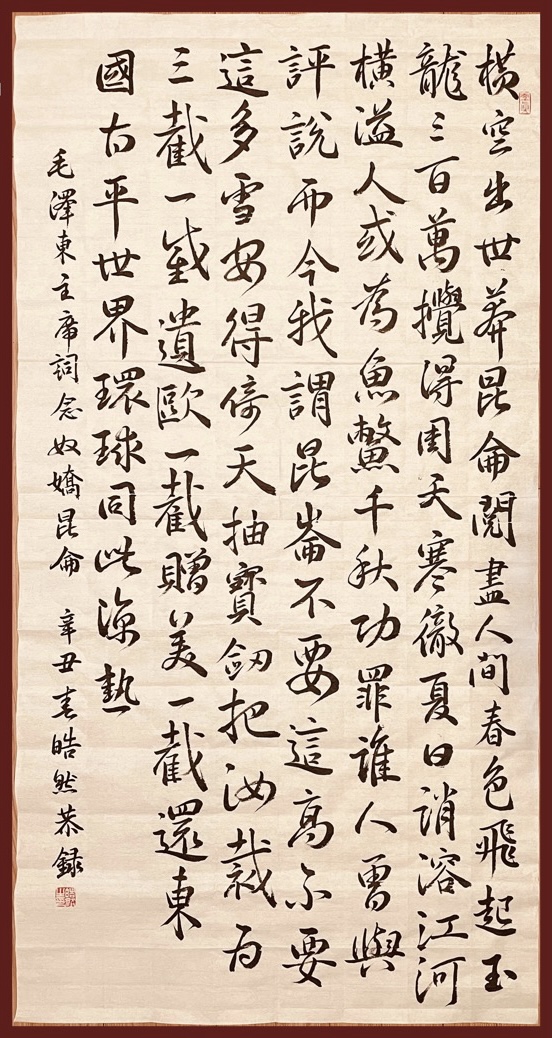 橫空出世莽昆侖閱盡人間春色飛起玉
龍三百萬攪得周天寒徹夏日誚溶江河
橫溢人或為魚鱉千秋功罪誰人曾與
評說而今我謂昆崙不要這高不要
這多雪安得倚天抽寶劍把汝裁為
三截一截遺歐一截贈美一截還東
國太平世界環球同此涼熱
毛澤東主席詞念奴嬌昆侖 辛丑春皓然恭録